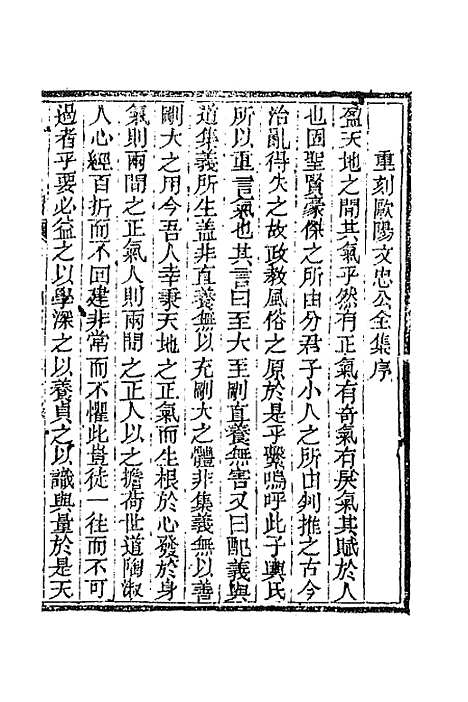 重刻歐陽文忠公全集序
盈天地之間其氣乎然有正氣有奇氣有戾氣其賦於人
也固聖賢豪傑之所由分君子小人之所由判推之古今
治亂得失之故政教風俗之原於是乎繫嗚呼此子輿氏
所以重言氣也其言曰至大至剛直養無害又曰配義與
道集義所生蓋非直養無以充剛大之體非集義無以善
剛大之用今吾人幸秉天地之正氣而生根於心發於身
氣則兩間之正氣人則兩間之正人以之擔荷世道陶淑
人心經百折而不回建非常而不懼此豈徒一往而不可
過者乎要必益之以學深之以養貞之以識與量於是天